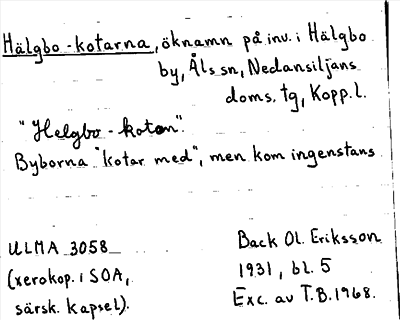 Hälgbo-kotarna, öknamn på inv. i Hälgbo
by, Åls sn, Nedansiljans
doms. tg, Kopp. l.
"Helgbo-koton".
Byborna "kotar med", men kom ingenstans
ULMA 3058
(xerokop. i SOA,
särsk. kapsel).
Back Ol. Eriksson
1931, bl. 5
Exc. av T.B. 1968.